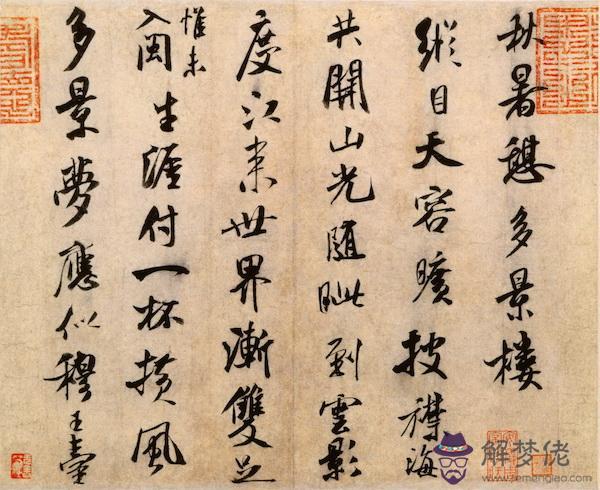 秋暑憩多景樓
縱目天容曠披襟海
共開山光隨眦到雲影
度江來世界漸雙足
惟未
入閩生涯付一杯橫風
多景夢應似穆王臺
解梦佬
www.jiemenglao.com